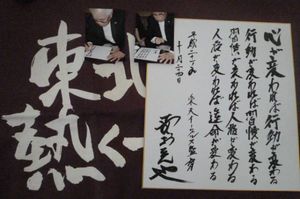 東北
熱く
心が変われば行動が変わる
行動が変われば習慣が変わる
習慣が変われば人格が変わる
人格が変われば運命が変わる
平成二十
楽天イーグルス監督
野村克也